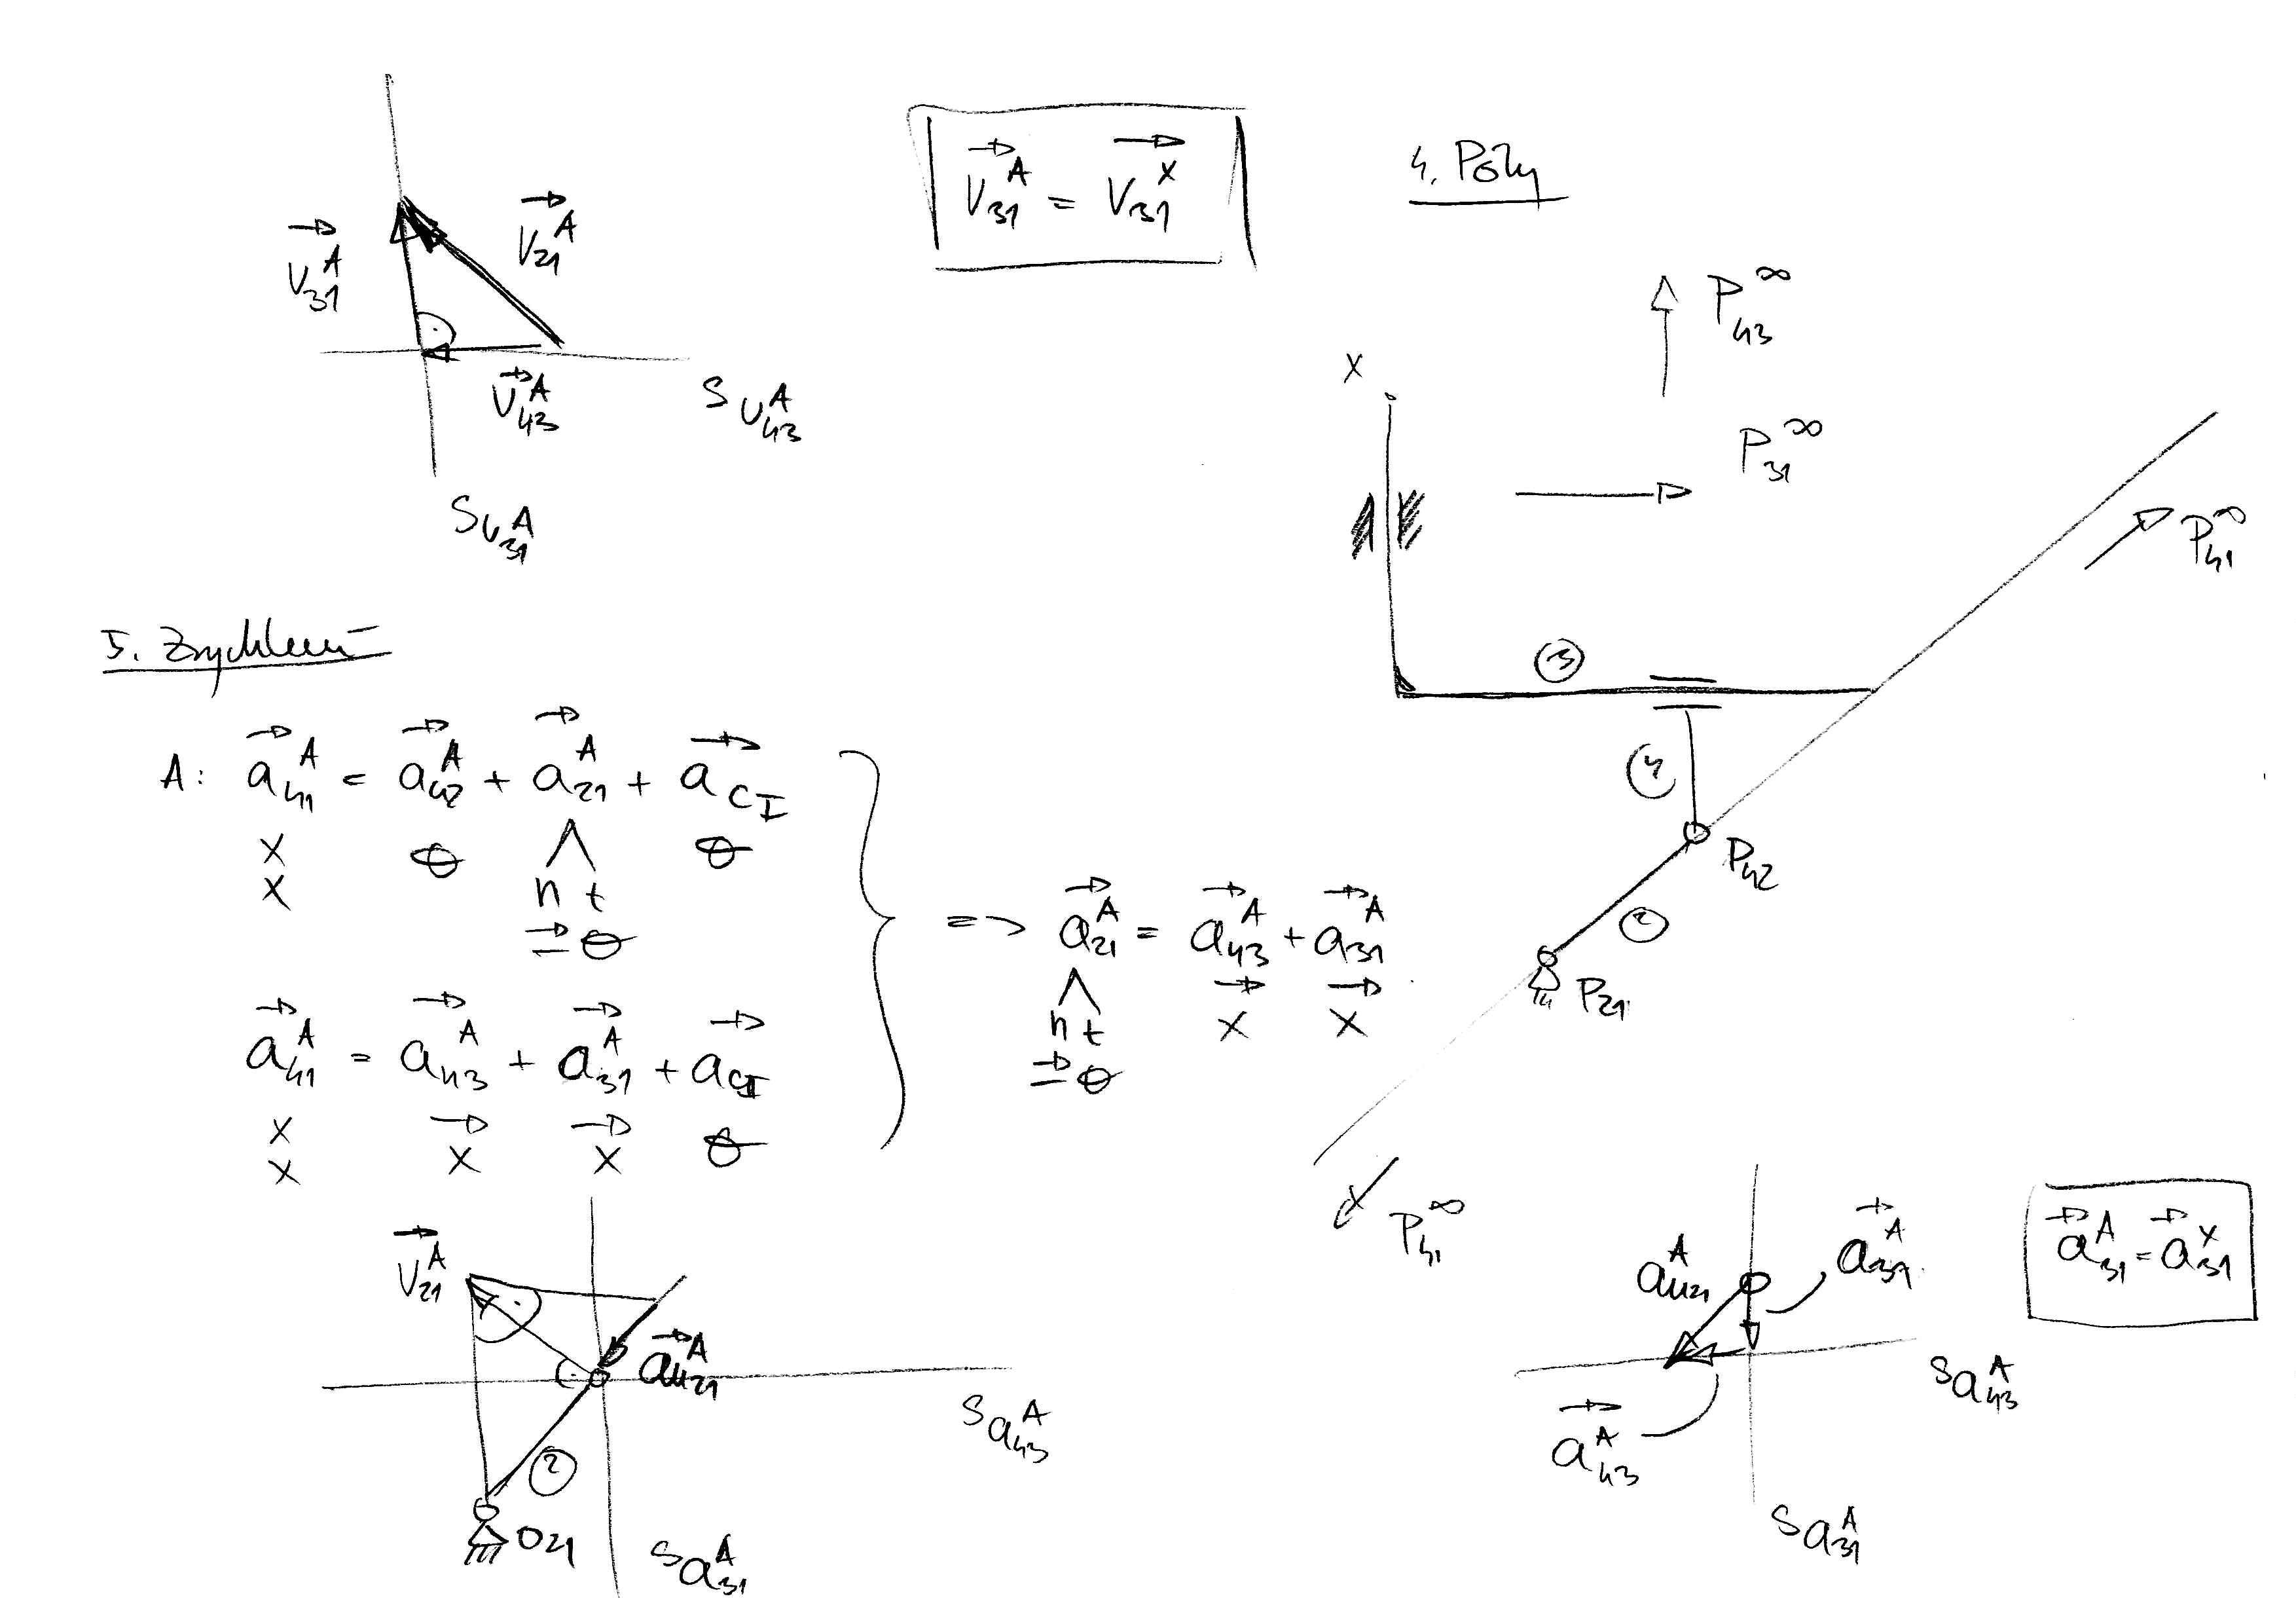 v⃗₃₁ᴬ
v⃗₂₁ᴬ
v⃗₄₃ᴬ
s v₄₃ᴬ
s v₃₁ᴬ
v⃗₃₁ᴬ = v⃗₃₁ˣ
4. Póly
P₄₃^∞
P₃₁^∞
x
P₄₁^∞
3
4
P₄₂
2
P₂₁
P₄₁^∞
5. Zrychlení
A: a⃗₄₁ᴬ = a⃗₄₂ᴬ + a⃗₂₁ᴬ + a⃗_CI
x
x
n t
a⃗₄₁ᴬ = a⃗₄₃ᴬ + a⃗₃₁ᴬ + a⃗_CI
x x x
x
=> a⃗₂₁ᴬ = a⃗₄₃ᴬ + a⃗₃₁ᴬ
n t x x
v⃗₂₁ᴬ
a⃗ₙ₂₁ᴬ
2
O₂₁
s a₄₃ᴬ
s a₃₁ᴬ
aₙ₂₁ᴬ
a⃗₃₁ᴬ
a⃗₄₃ᴬ
s a₄₃ᴬ
s a₃₁ᴬ
a⃗₃₁ᴬ = a⃗₃₁ˣ